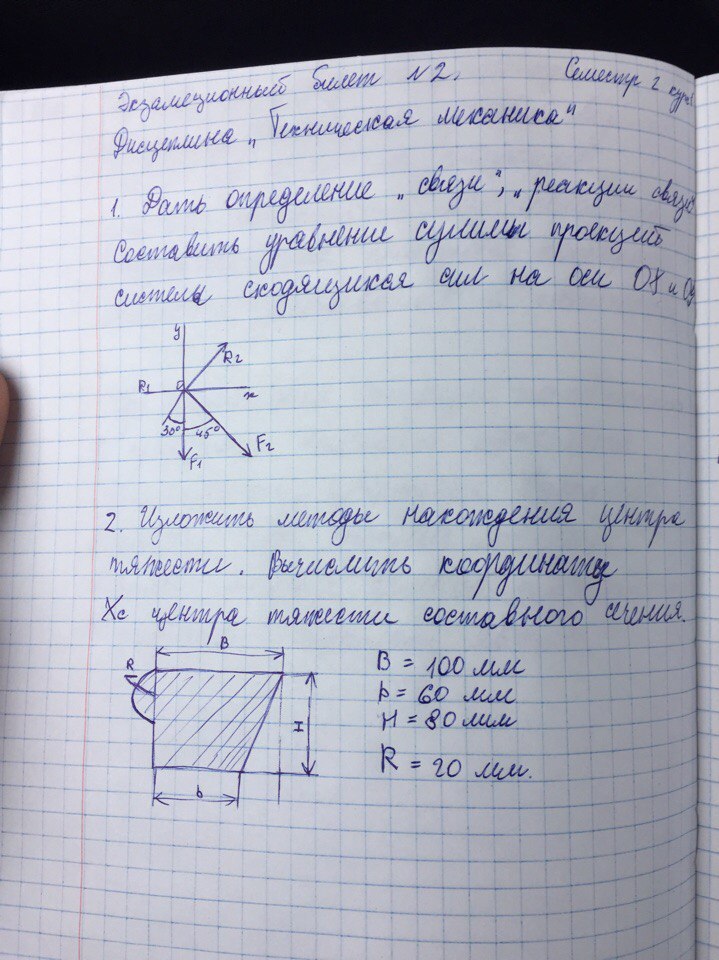 Экзамеционный билет N2. Семестр 2 курс
Дисциплина „Техническая механика"
1. Дать определение „связи", „реакции связи
Составить уравнение суммы проекций
системы сходящихся сил на оси OX и Oy
y
R2
R1
O
x
30°
45°
F1
F2
2. Изложить методы нахождения центра
тяжести. Вычислить координату
Xc центра тяжести составного сечения.
B
R
H
b
B = 100 мм
b = 60 мм
H = 80 мм
R = 20 мм.